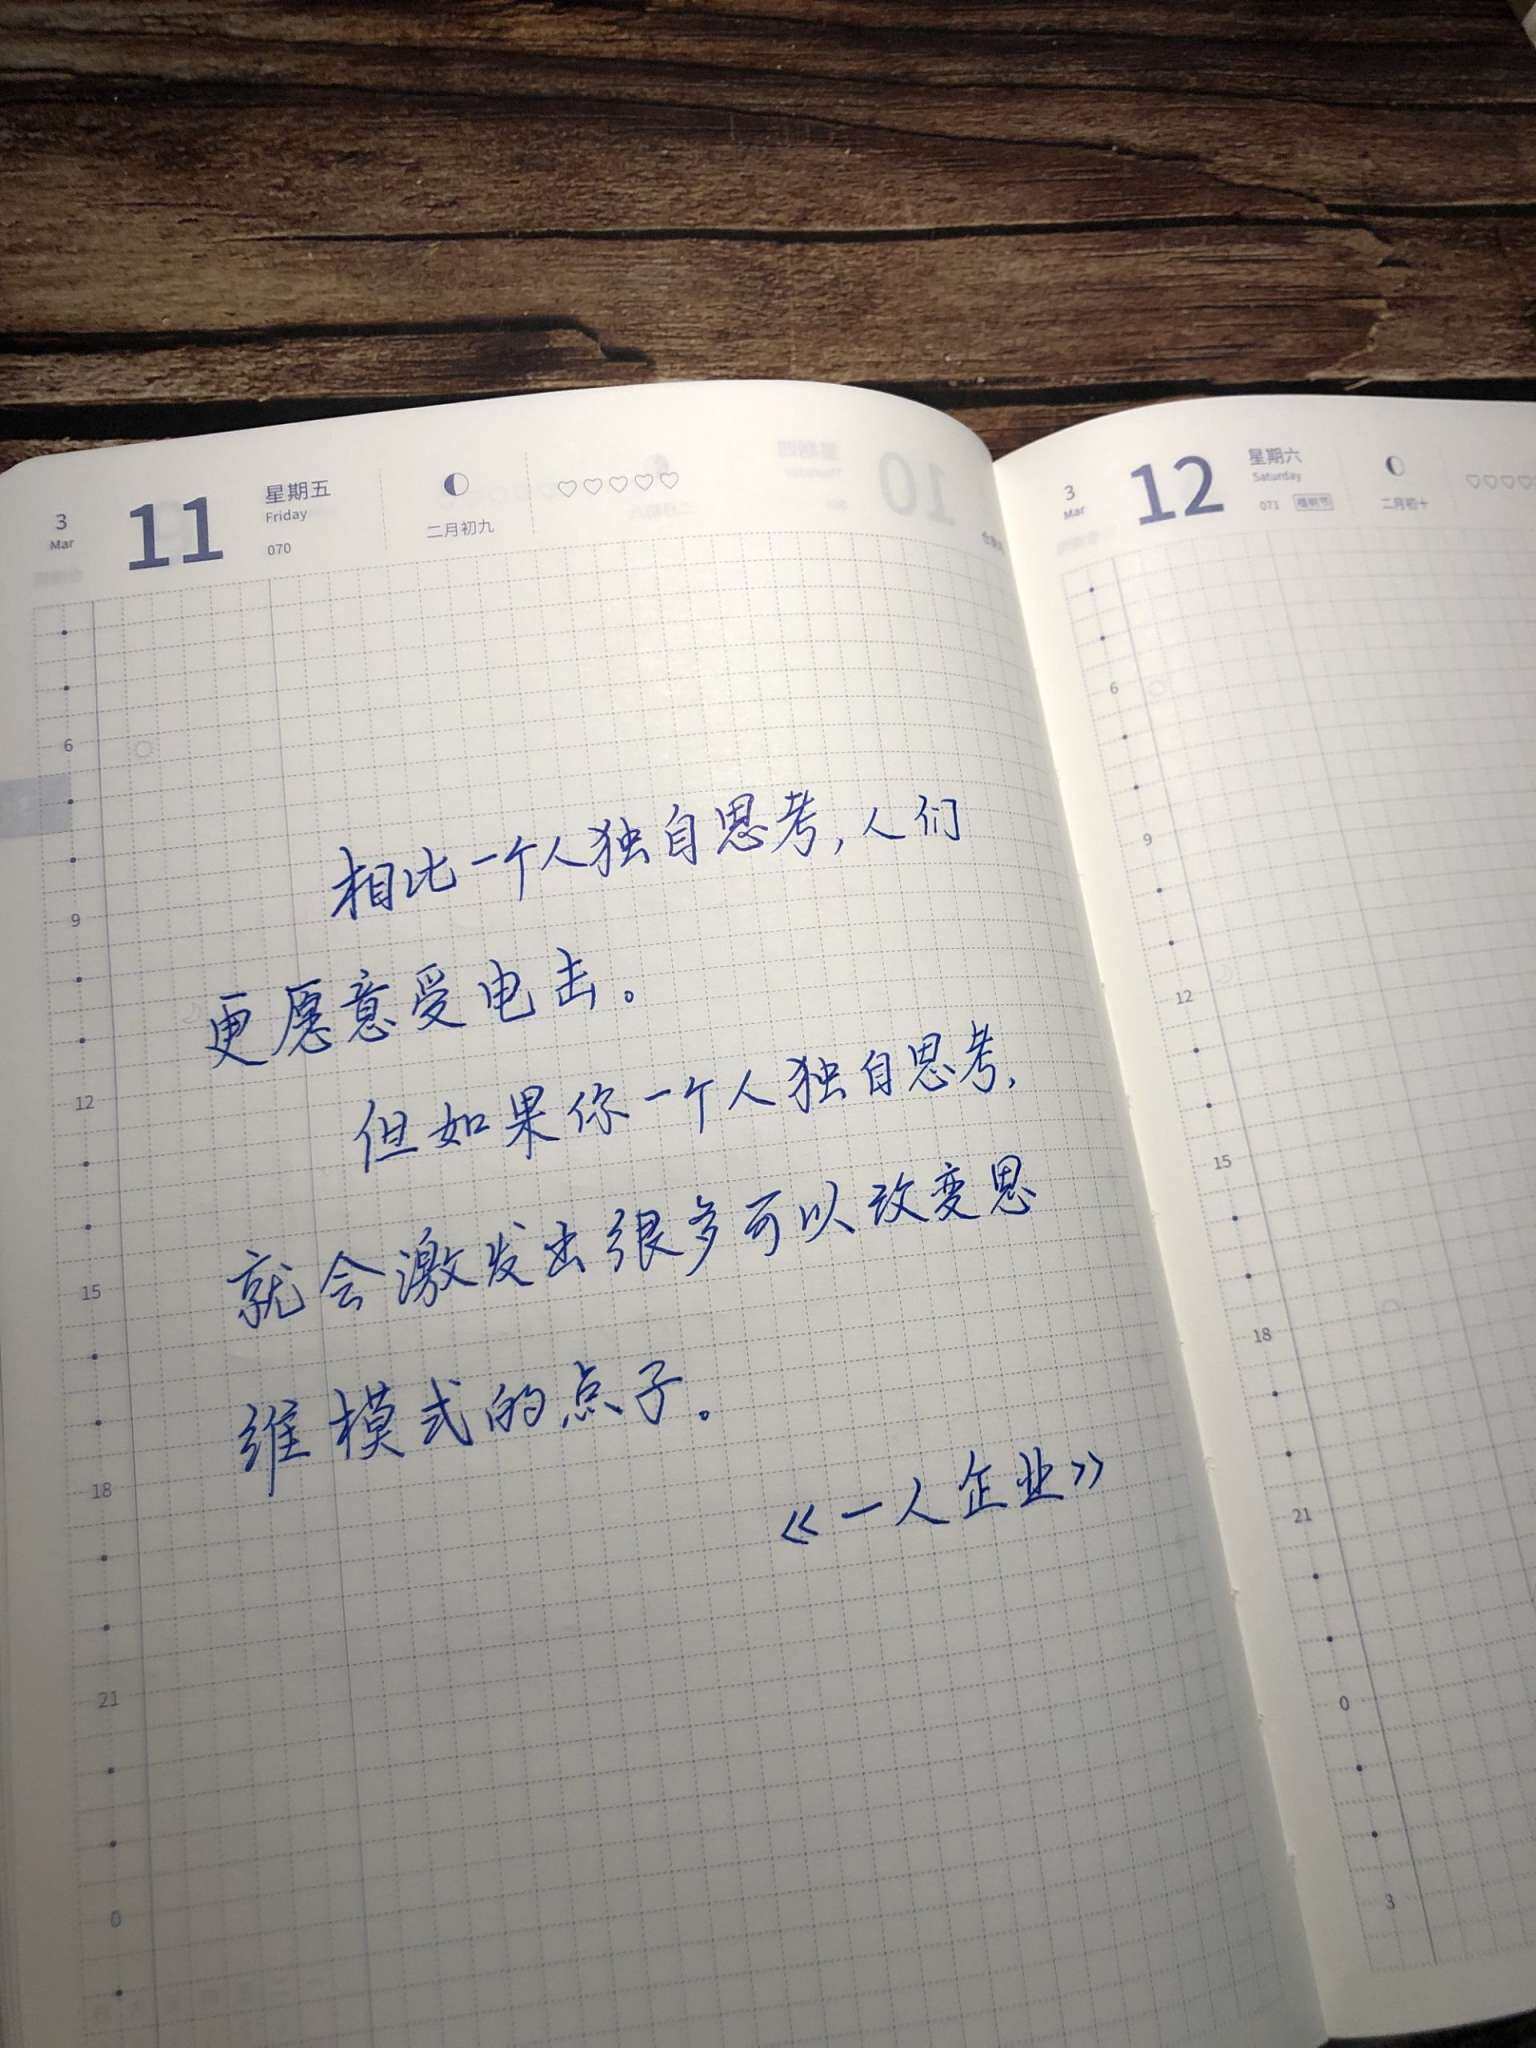 3
Mar
11
星期五
Friday
070
二月初九
相比一个人独自思考，人们
更愿意受电击。
但如果你一个人独自思考，
就会激发出很多可以改变思
维模式的点子。
《一人企业》
6
9
12
15
18
21
0
10
3
Mar
12
星期六
Saturday
071 植树节
二月初十
6
9
12
15
18
21
0
3